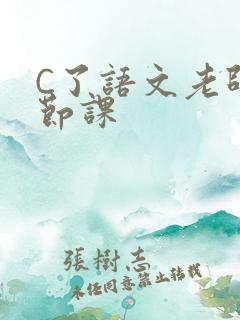 C了語文老師
節課
張樹志
未經同意禁止轉載